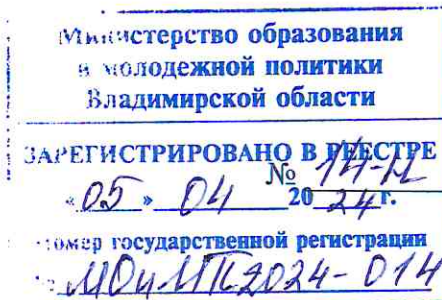 Министерство образования
и молодежной политики
Владимирской области
ЗАРЕГИСТРИРОВАНО В РЕЕСТРЕ
№ 14-Н
«05» 04 2024 г.
номер государственной регистрации
№ МОиМП2024-014